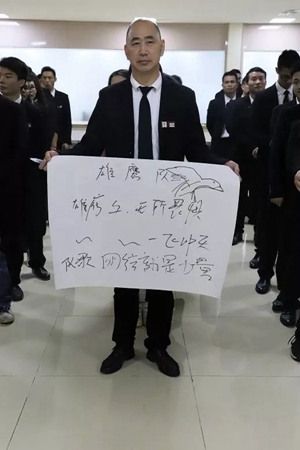 雄鹰队
雄鹰 无所畏惧
～ ～ 一飞冲天
队歌 团结就是力量